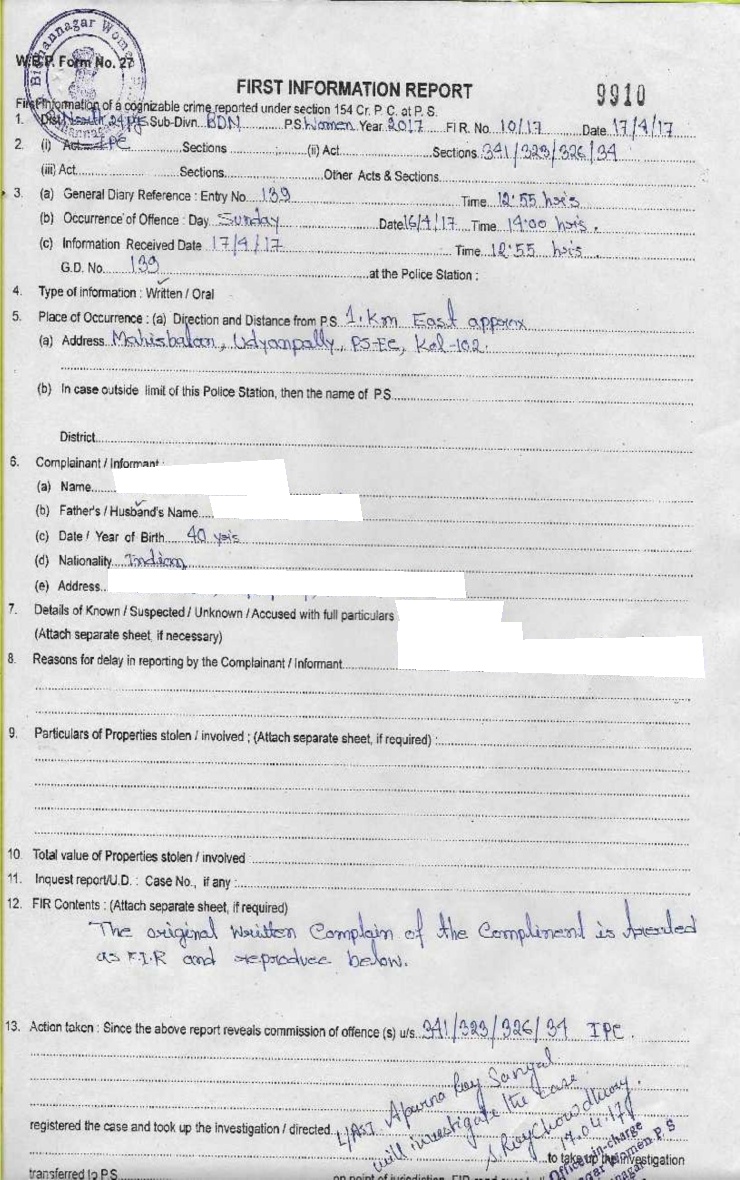 Bidhannagar Women
W.B.P. Form No. 27
FIRST INFORMATION REPORT
9910
First Information of a cognizable crime reported under section 154 Cr. P. C. at P. S.
1. Dist. North 24 PGS Sub-Divn. BDN P.S Women Year 2017 F I R. No. 10/17 Date 17/4/17
2. (i) Act IPC Sections (ii) Act Sections 341/323/326/34
(iii) Act Sections Other Acts & Sections
3. (a) General Diary Reference : Entry No 139 Time 12:55 hrs
(b) Occurrence of Offence : Day Sunday Date 16/4/17 Time 14:00 hrs.
(c) Information Received Date 17/4/17 Time 12:55 hrs
G.D. No. 139 at the Police Station :
4. Type of information : Written / Oral
5. Place of Occurrence : (a) Direction and Distance from P.S. 1. Km East approx
(a) Address Mahisbatan, Udyanpally, PS-EC, Kol-102.
(b) In case outside limit of this Police Station, then the name of P.S
District
6. Complainant / Informant :
(a) Name
(b) Father's / Husband's Name
(c) Date / Year of Birth 40 yrs
(d) Nationality Indian
(e) Address
7. Details of Known / Suspected / Unknown / Accused with full particulars
(Attach separate sheet, if necessary)
8. Reasons for delay in reporting by the Complainant / Informant
9. Particulars of Properties stolen / involved ; (Attach separate sheet, if required) :
10. Total value of Properties stolen / involved
11. Inquest report/U.D. : Case No., if any :
12. FIR Contents : (Attach separate sheet, if required)
The original Written Complain of the Compliment is treated
as F.I.R and reproduce below.
13. Action taken : Since the above report reveals commission of offence (s) u/s. 341/323/326/34 IPC.
registered the case and took up the investigation / directed L/ASI Aparna Roy Sanyal
will investigate the case
S. Roy Chowdhury.
17.04.17
Officer-in-charge
to take up the investigation
Women P.S
transferred to P.S.